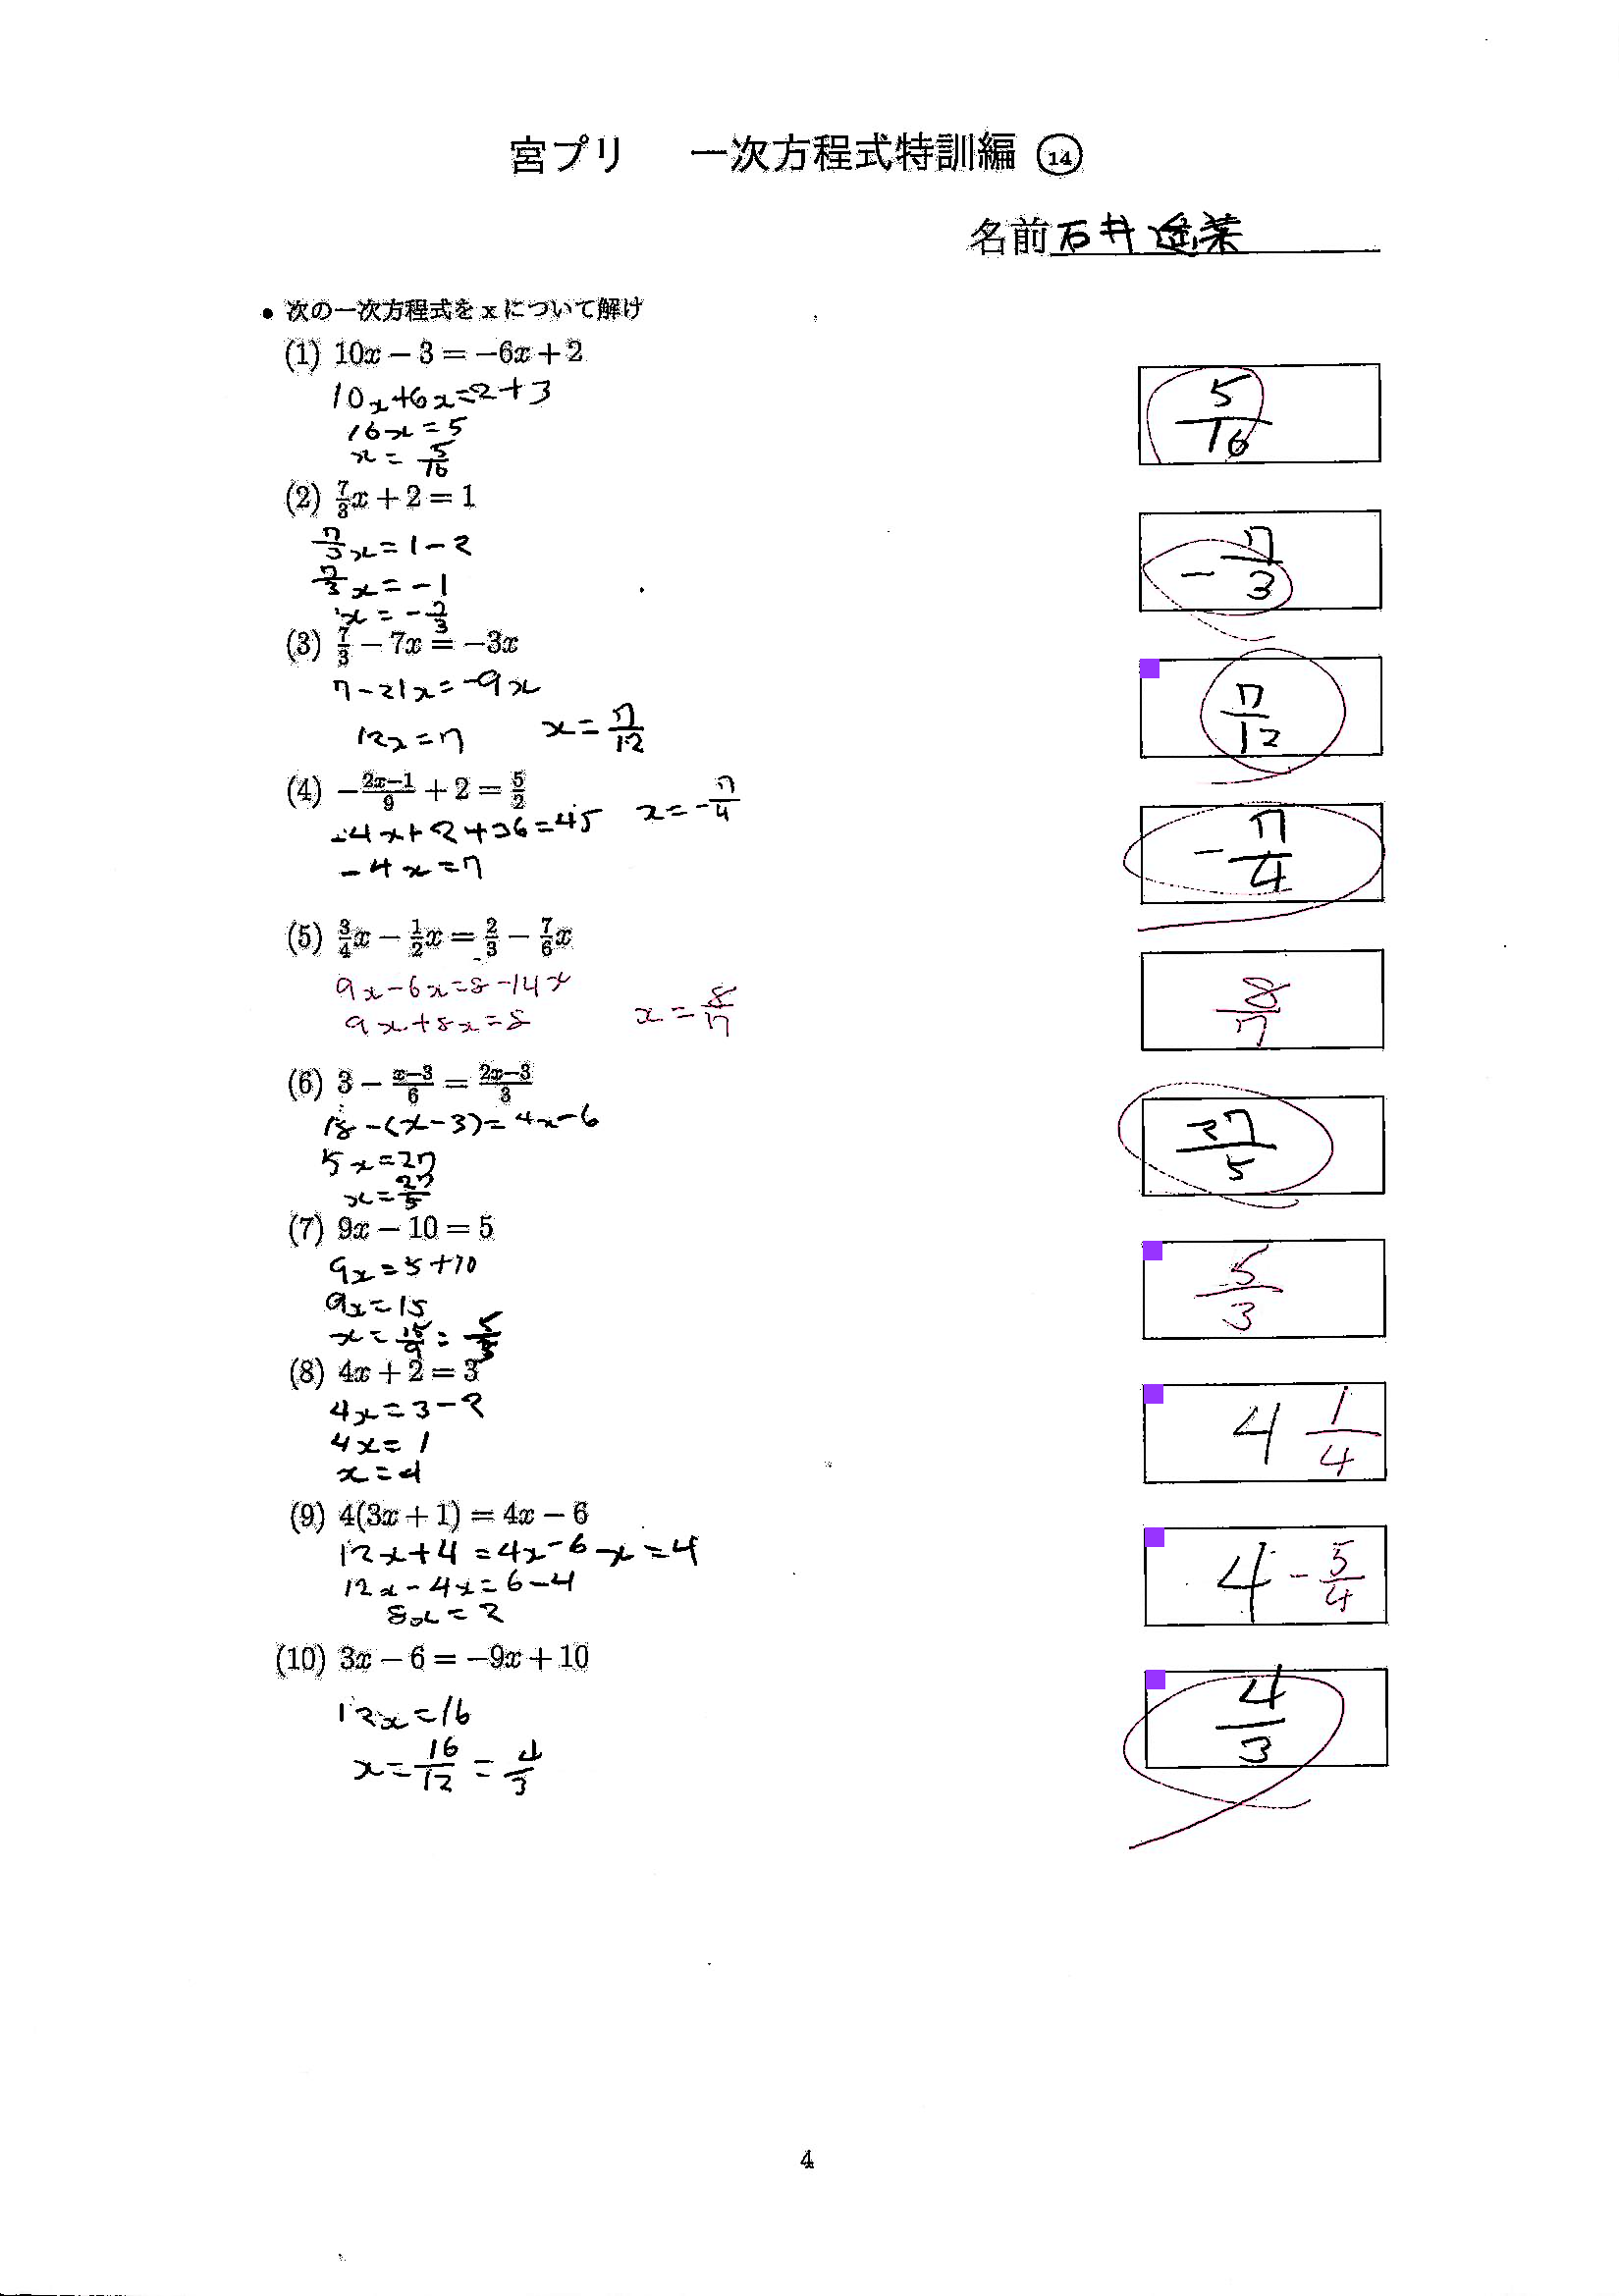 宮プリ 一次方程式特訓編 ⑭
名前 石井 遥菜
• 次の一次方程式を x について解け
(1) 10x − 3 = −6x + 2
10x+6x=2+3
16x=5
x= 5/16
5/16
(2) 7/3x + 2 = 1
7/3x=1−2
7/3x=−1
x=−7/3
−7/3
(3) 7/3 − 7x = −3x
7−21x=−9x
12x=7 x=7/12
7/12
(4) −(2x−1)/9 + 2 = 5/2
−4x+2+36=45 x=−7/4
−4x=7
−7/4
(5) 3/4x − 1/2x = 2/3 − 7/6x
9x−6x=8−14x
9x+8x=8 x=8/17
8/17
(6) 3 − (x−3)/6 = (2x−3)/3
18−(x−3)=4x−6
5x=27
x=27/5
27/5
(7) 9x − 10 = 5
9x=5+10
9x=15
x=15/9=5/3
5/3
(8) 4x + 2 = 3
4x=3−2
4x=1
x=4
4 1/4
(9) 4(3x + 1) = 4x − 6
12x+4=4x−6 x=4
12x−4x=6−4
8x=2
4 −5/4
(10) 3x − 6 = −9x + 10
12x=16
x=16/12=4/3
4/3
4